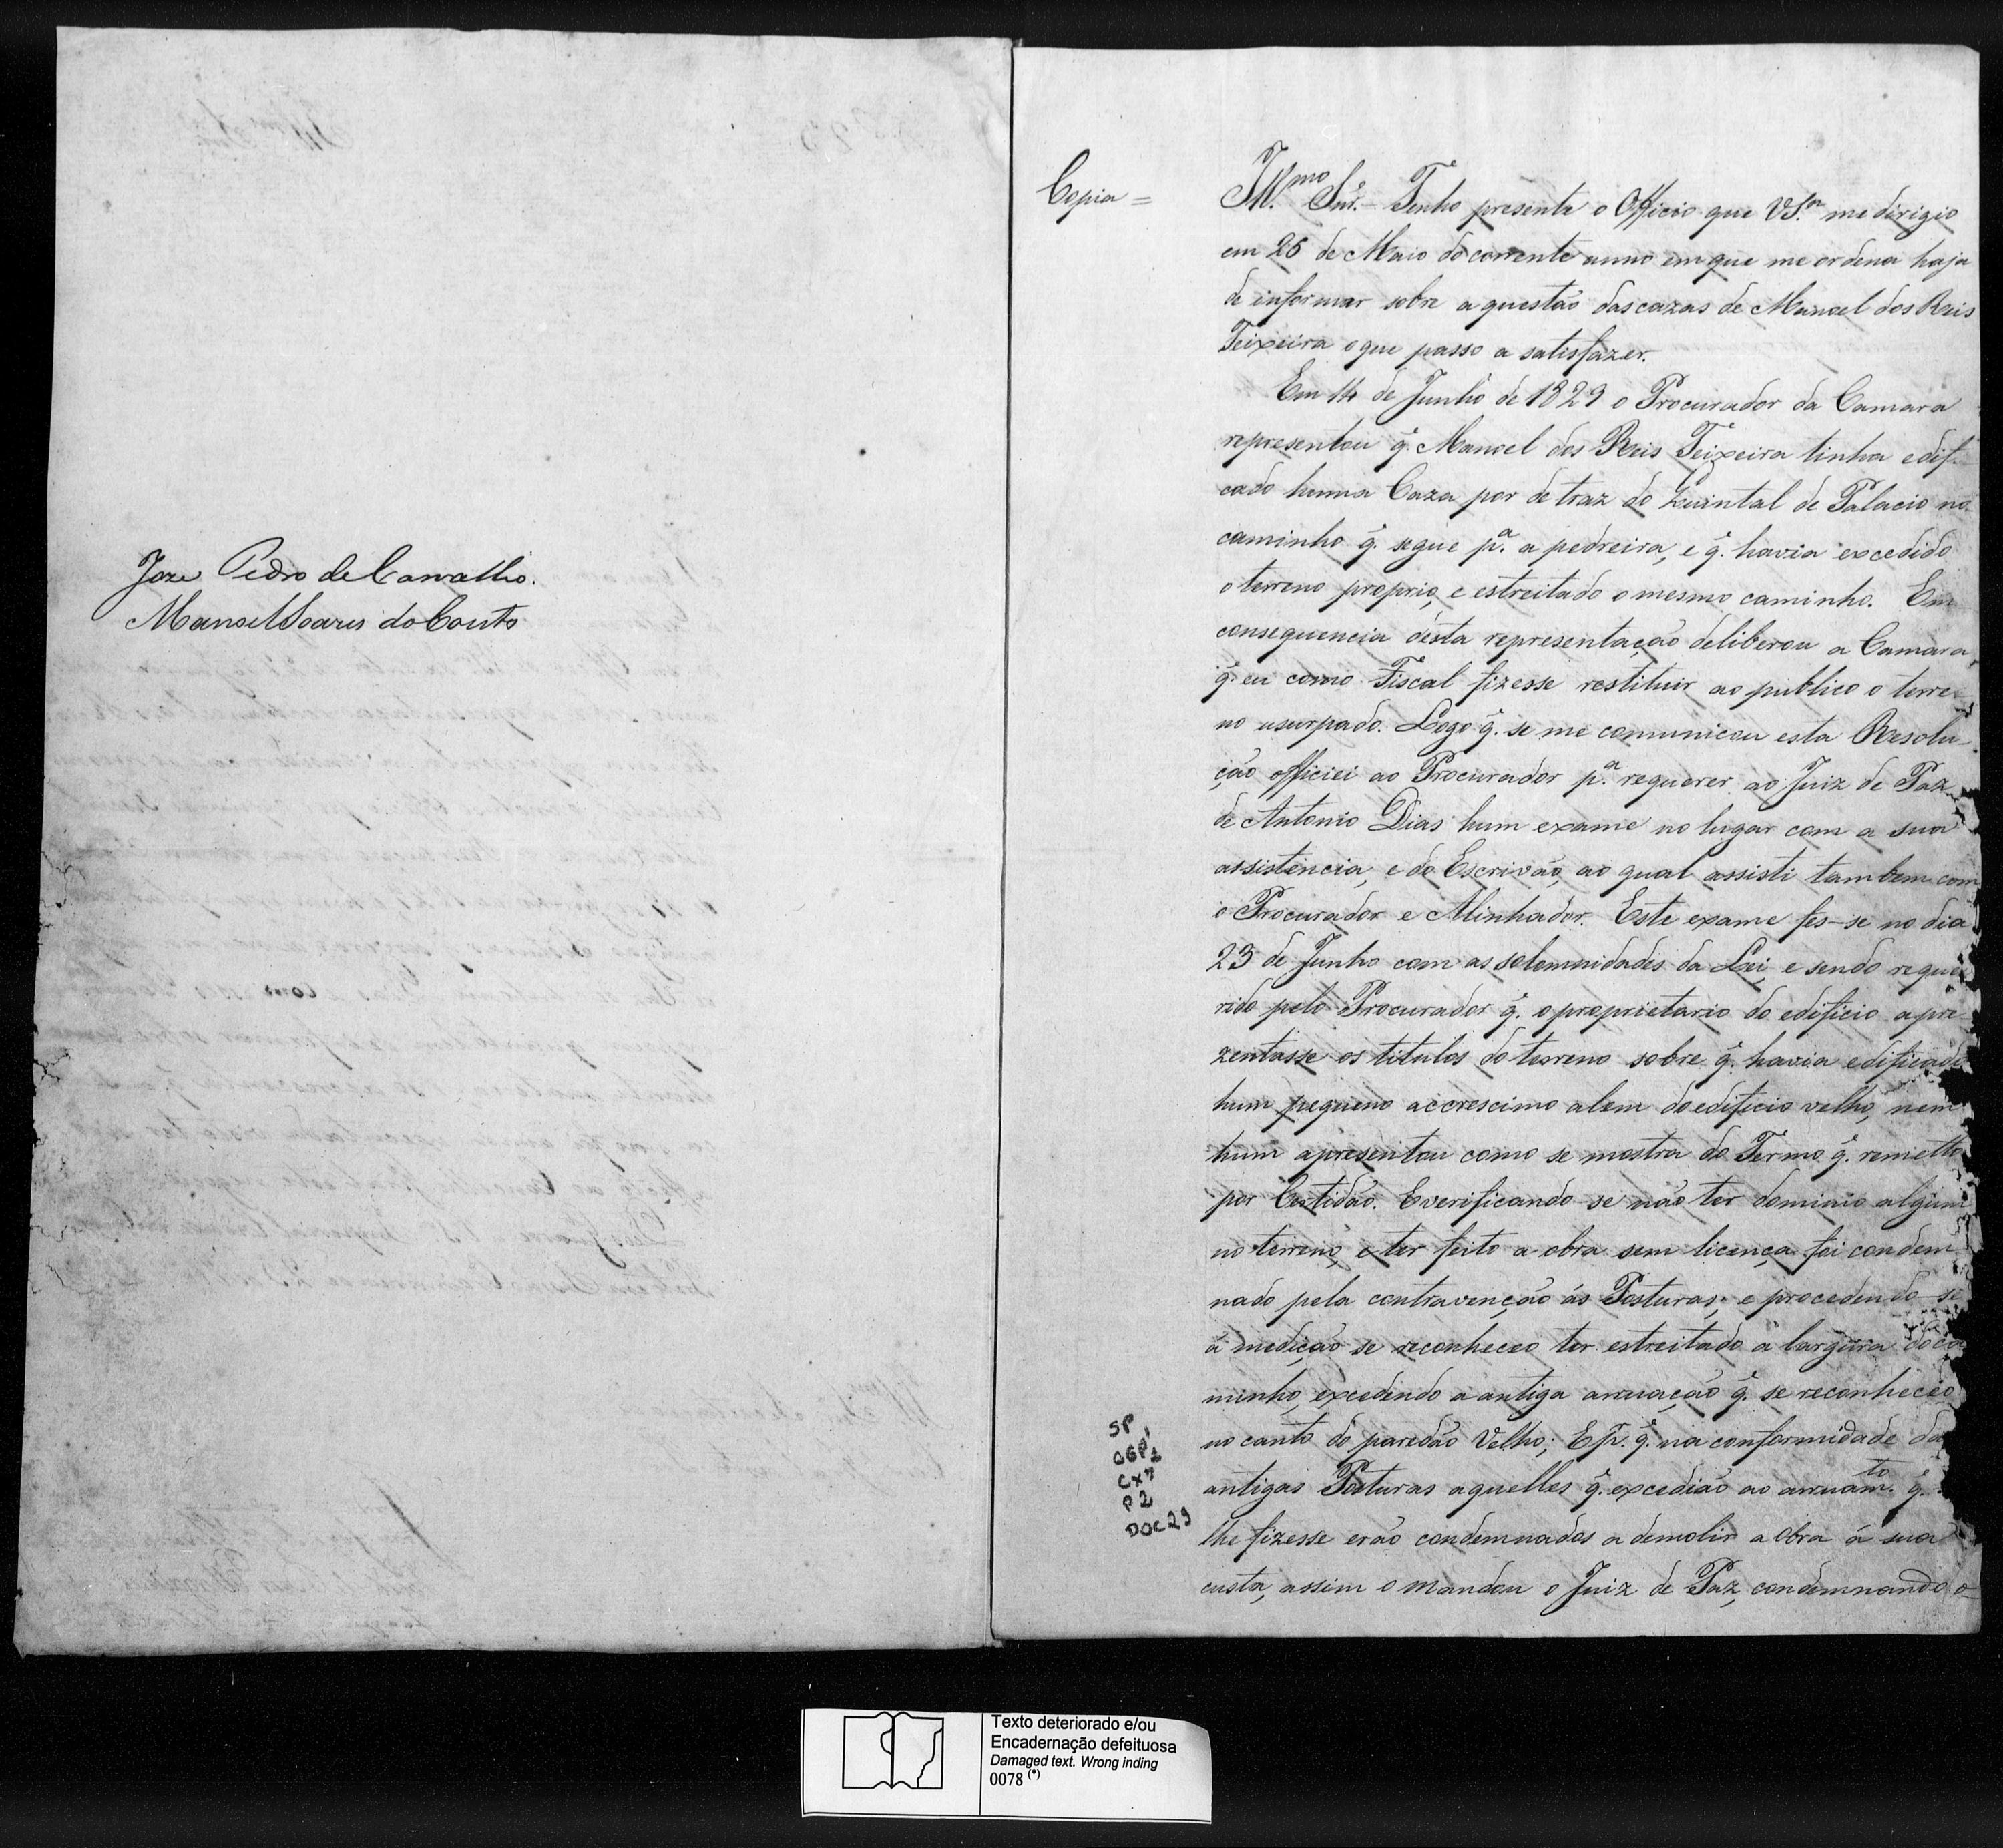 Joze Pedro de Carvalho.
Manoel Soares do Couto
Copia =
Ill.mo Snr. – Tenho presente o Officio que V S.ª me dirigio
em 26 de Maio do corrente anno em que me ordena haja
de informar sobre a questão das cazas de Manoel dos Reis
Teixeira o que passo a satisfazer.
Em 14 de Junho de 1829 o Procurador da Camara
representou q̃. Manoel dos Reis Teixeira tinha edifi-
cado huma Caza por detraz do Quintal de Palacio no
caminho q̃. segue p.ª a pedreira, e q̃. havia excedido
o terreno proprio, e estreitado o mesmo caminho. Em
consequencia desta representação deliberou a Camara,
q̃. eu como Fiscal fizesse restituir ao publico o terre-
no usurpado. Logo q̃. se me comunicou esta Resolu-
ção officiei ao Procurador p.ª requerer ao Juiz de Paz
de Antonio Dias hum exame no lugar com a sua
assistencia, e do Escrivão, ao qual assisti tambem com
o Procurador e Alinhador. Este exame fes-se no dia
23 de Junho com as solemnidades da Lei, e sendo reque-
rido pelo Procurador q̃. o proprietario do edificio apre-
zentasse os titulos do terreno sobre q̃. havia edificado
hum pequeno accrescimo alem do edificio velho, nem
hum apresentou como se mostra do Termo q̃. remetto
por Certidão. E verificando-se não ter dominio algum
no terreno, e ter feito a obra sem licença foi condem-
nado pela contravenção ás Posturas; e procedendo-se
á medição se reconheceo ter estreitado a largura do ca-
minho, excedendo a antiga arruação q̃. se reconheceo
no canto do paredão Velho; E p.r q̃. na conformidade da
antigas Posturas aquelles q̃. excedião ao arruam.to q̃.
lhe fizesse erão condemnados a demolir a obra á sua
custa, assim o mandou o Juiz de Paz, condemnando o-
SP
CX7
P2
DOC29
Texto deteriorado e/ou
Encadernação defeituosa
Damaged text. Wrong inding
0078 (*)